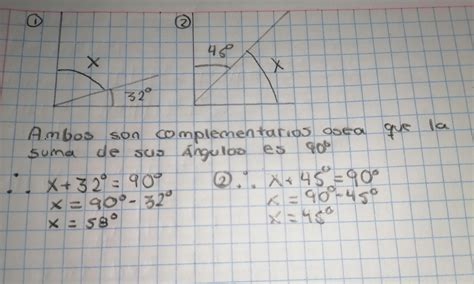 ① ②
x 32° 45° x
Ambos son complementarios osea que la
suma de sus ángulos es 90°
∴ x+32°=90° ② ∴ x+45°=90°
x=90°-32° x=90°-45°
x=58° x=45°